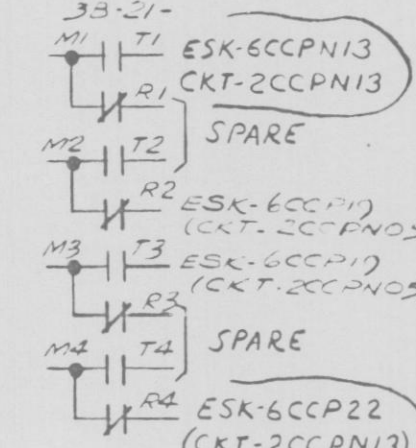 3B-21-
M1 T1 ESK-6CCPN13
CKT-2CCPN13
R1
SPARE
M2 T2
R2 ESK-6CCP19
(CKT-2CCPN05
M3 T3 ESK-6CCP19
(CKT-2CCPN05
R3
SPARE
M4 T4
R4 ESK-6CCP22
(CKT-2CCPN13)